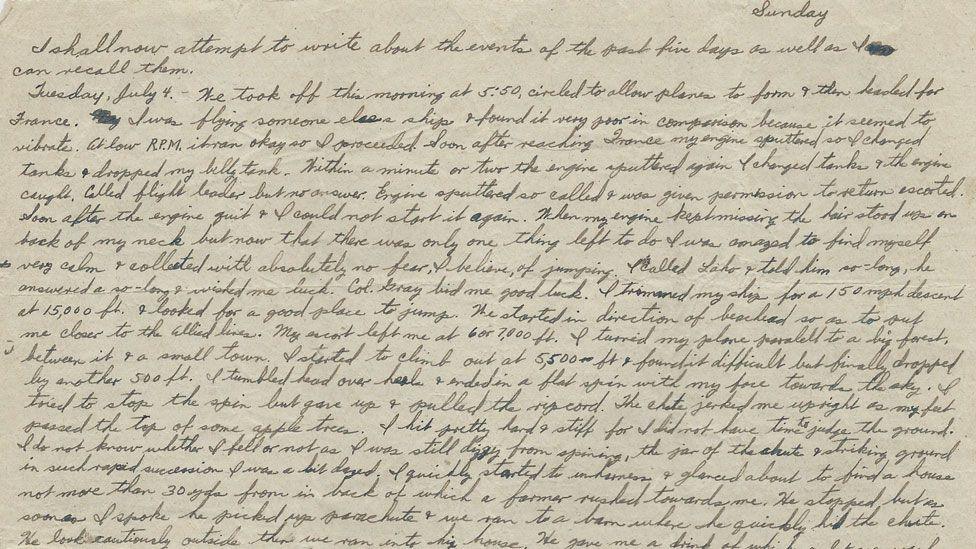 Sunday
I shall now attempt to write about the events of the past five days as well as I
can recall them.
Tuesday, July 4. - We took off this morning at 5:50, circled to allow planes to form & then headed for
France. I was flying someone else's ship & found it very poor in comparison because it seemed to
vibrate. At low R.P.M. it ran okay so I proceeded. Soon after reaching France my engine sputtered so I changed
tanks & dropped my belly tank. Within a minute or two the engine sputtered again I changed tanks & the engine
caught. Called flight leader but no answer. Engine sputtered so called & was given permission to return escorted.
Soon after the engine quit & I could not start it again. When my engine kept missing the hair stood up on
back of my neck but now that there was only one thing left to do I was amazed to find myself
very calm & collected with absolutely no fear, I believe, of jumping. I called Laho & told him so-long, he
answered a so-long & wished me luck. Col. Gray bid me good luck. I trimmed my ship for a 150 mph descent
at 15,000 ft. & looked for a good place to jump. We started in direction of beachead so as to put
me closer to the Allied lines. My escort left me at 6 or 7,000 ft. I turned my plane paralell to a big forest,
between it & a small town. I started to climb out at 5,500 ft & found it difficult but finally dropped
by another 500 ft. I tumbled head over heels & ended in a flat spin with my face towards the sky. I
tried to stop the spin but gave up & pulled the ripcord. The chute jerked me upright as my feet
passed the top of some apple trees. I hit pretty hard & stiff for I did not have time to judge the ground.
I do not know whether I fell or not as I was still dizzy from spining, the jar of the chute & striking ground
in such rapid succession I was a bit dazed. I quickly started to unharness & glanced about to find a house
not more than 30 yds from in back of which a farmer rushed towards me. He stopped but as
soon as I spoke he picked up parachute & we ran to a barn where he quickly hid the chute.
He look cautiously outside then we ran into his house. He gave me a drink of